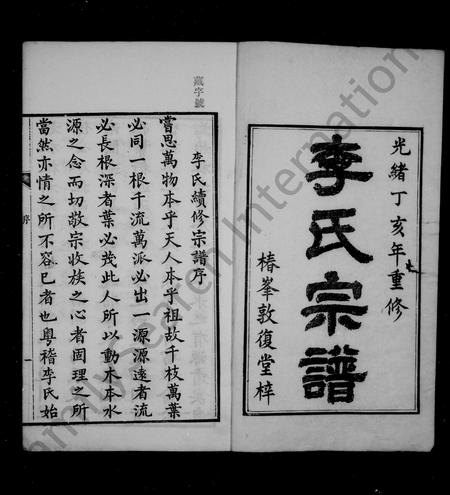 光緒丁亥年重修
李氏宗譜
椿峯敦復堂梓
藏字號
李氏續修宗譜序
嘗思萬物本乎天人本乎祖故千枝萬葉
必同一根千流萬派必出一源源遠者流
必長根深者葉必茂此人所以動木本水
源之念而切敬宗收族之心者固理之所
當然亦情之所不容已者也粵稽李氏始
序
一
Family Search International